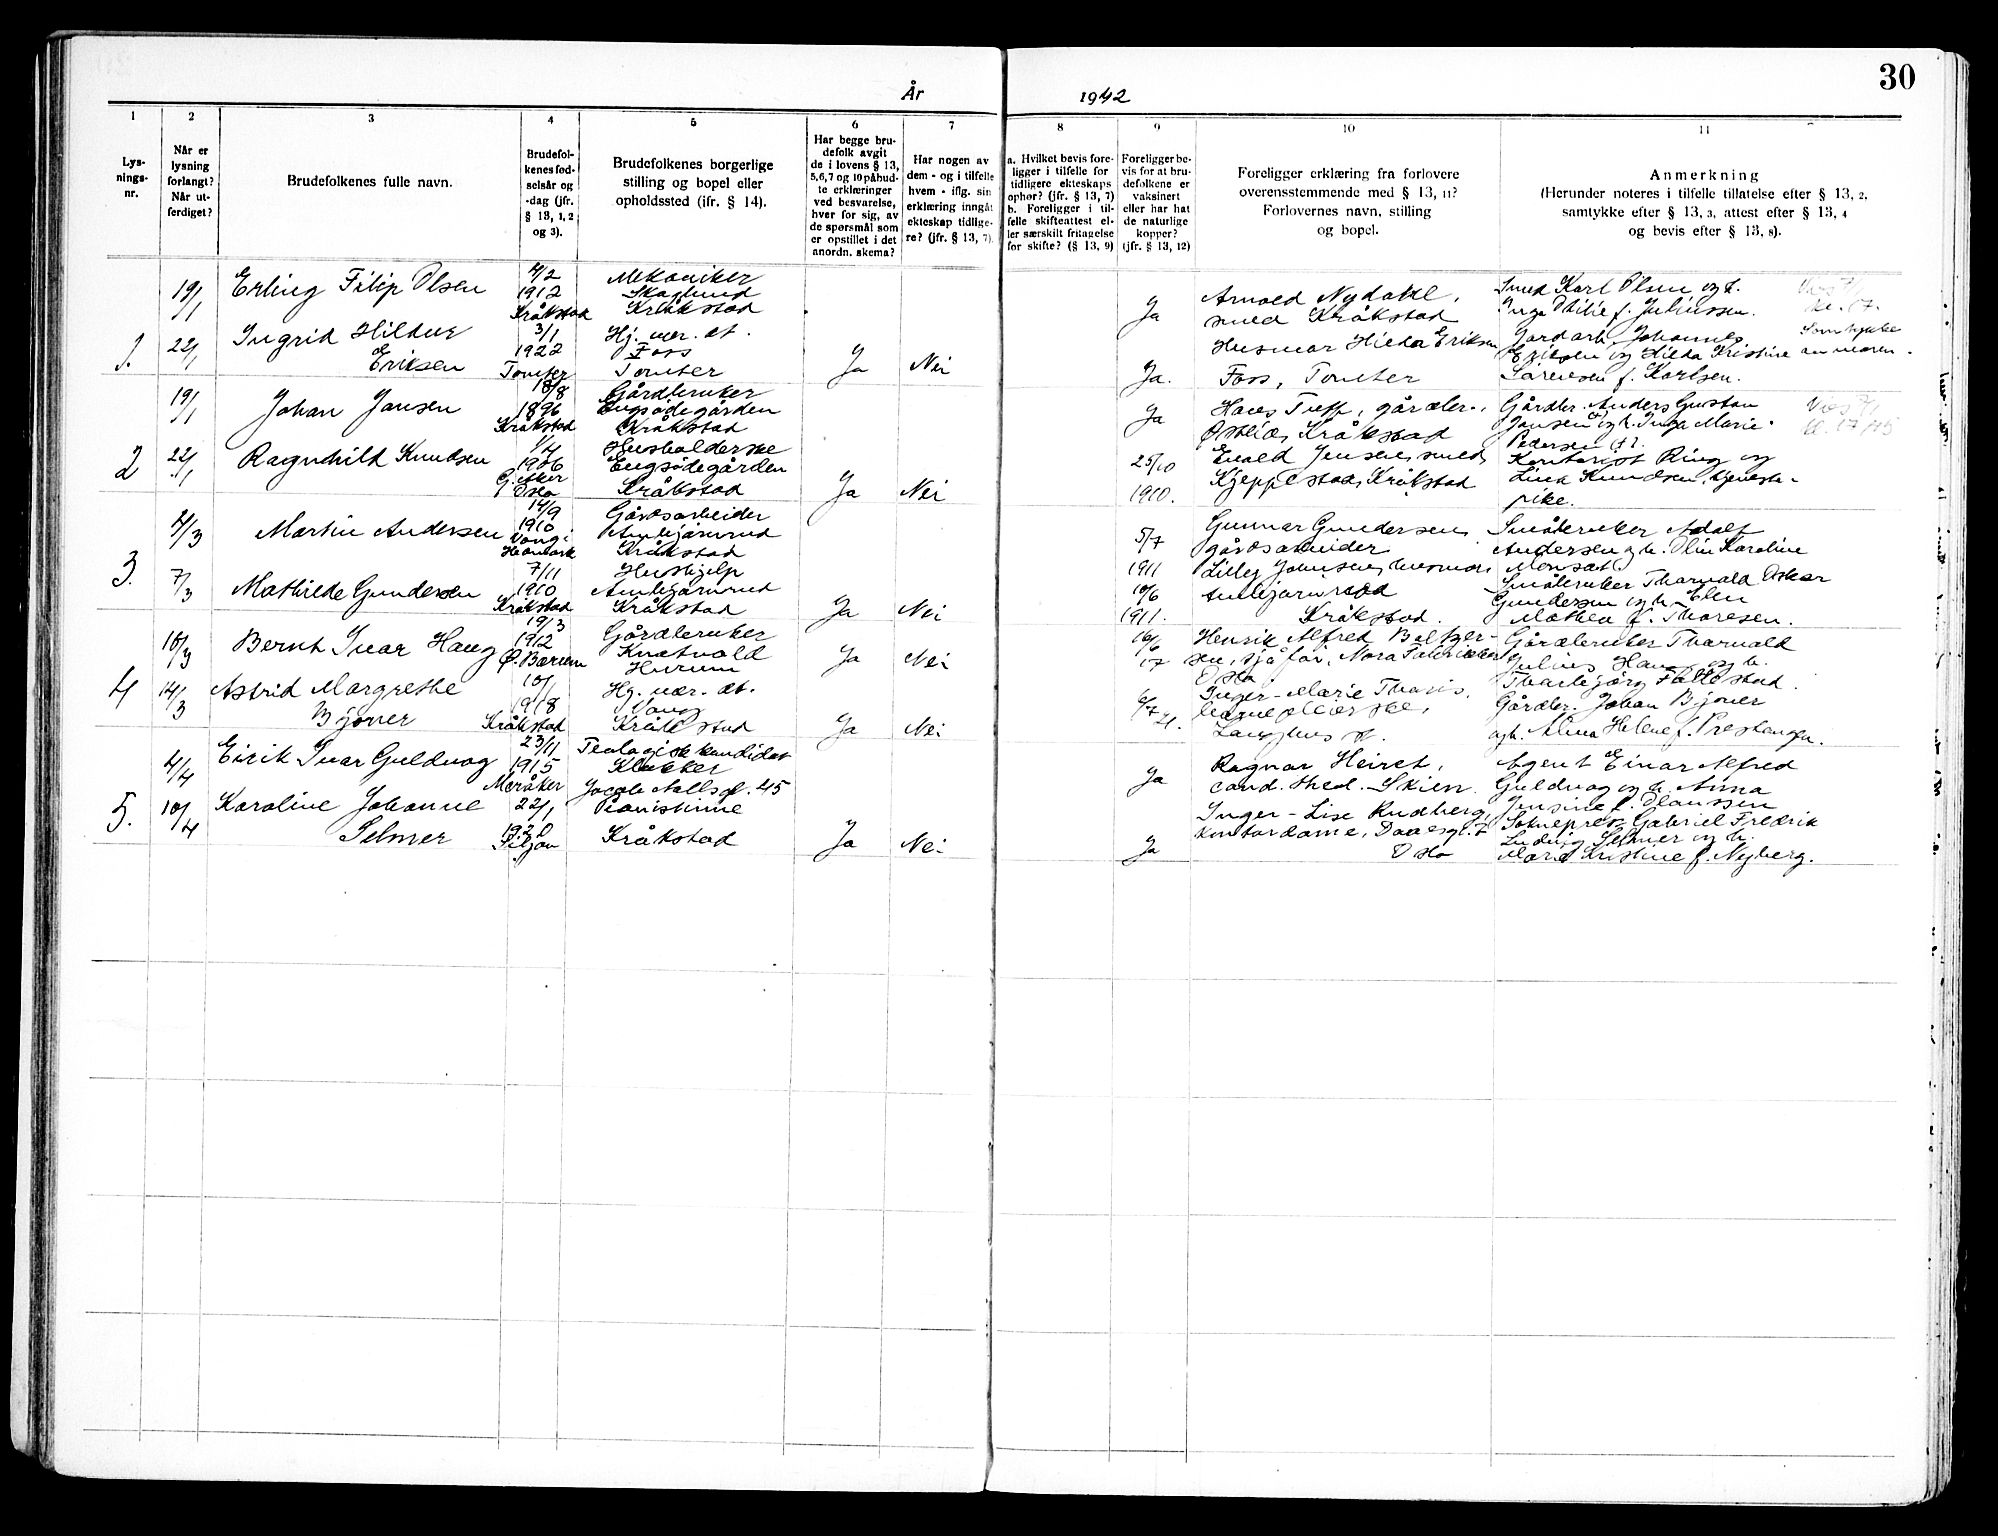 30
År 1942
1 2 3 4 5 6 7 8 9 10 11
Lys-
nings-
nr.
Når er
lysning
forlangt?
Når ut-
ferdiget?
Brudefolkenes fulle navn.
Brudefol-
kenes fød-
selsår og
-dag (jfr.
§ 13, 1, 2
og 3).
Brudefolkenes borgerlige
stilling og bopel eller
opholdssted (ifr. § 14).
Har begge bru-
defolk avgit
de i lovens § 13,
5,6,7 og 10 påbud-
te erklæringer
ved besvarelse,
hver for sig, av
de spørsmål som
er opstillet i det
anordn. skema?
Har nogen av
dem - og i tilfelle
hvem - iflg. sin
erklæring inngåt
ekteskap tidlige-
re? (jfr. § 13, 7).
a. Hvilket bevis fore-
ligger i tilfelle for
tidligere ekteskaps
ophør? (jfr. § 13, 7)
b. Foreligger i til-
felle skifteattest el-
ler særskilt fritagelse
for skifte? (§ 13, 9)
Foreligger be-
vis for at bru-
defolkene er
vaksinert
eller har hat
de naturlige
kopper?
(jfr. § 13, 12)
Foreligger erklæring fra forlovere
overensstemmende med § 13, 11?
Forlovernes navn, stilling
og bopel.
Anmerkning
(Herunder noteres i tilfelle tillatelse efter § 13, 2,
samtykke efter § 13, 3, attest efter § 13, 4
og bevis efter § 13, 8).
1.
19/1
22/1
Erling Filip Olsen
4/2
1912
Kråkstad
Mekaniker
Skoglund
Kråkstad
Ja
Arnold Nydahl,
smed Kråkstad
Smed Karl Olsen og h.
Inga Otilie f. Juliussen.
Ingrid Hildur
Eriksen
3/1
1922
Tomter
Hj. vær. dt.
Foss
Tomter
Ja
Nei
Ja.
Husmor Hilda Eriksen
Foss, Tomter
Jordarb. Johannes
Eriksen og Hilda Kristine
Sørensen f. Karlsen.
Samtykke
av moren.
2
19/1
22/1
Johan Jansen
18/8
1896
Kråkstad
Gårdbruker
Engsødegården
Kråkstad
Ja
Hans Treff, gårdbr.,
Østliæ, Kråkstad
Gårdbr. Anders Gustav
Jansen og h. Inga Marie
Pedersen
Ragnhild Knudsen
1/4
1906
G. Aker
Oslo
Husholderske
Engsødegården
Kråkstad
Ja
Nei
25/10
1910.
Evald Jensen, smed
Kjeppestad, Kråkstad
Kontorist Ring og
Lina Knudsen, tjeneste-
pike.
3.
4/3
7/3
Martin Andersen
14/9
1910
Vang i
Hedmark
Gårdsarbeider
Audejarnrud
Kråkstad
5/7
1911
Gunnar Gundersen
gårdsarbeider
Småbruker Adolf
Andersen og h. Olin Karoline
Mathilde Gundersen
7/11
1910
Kråkstad
Hushjelp
Kråkstad
Ja
Nei
10/6
1911.
Lilly Johnsen, husmor
Kråkstad.
Småbruker Tharvald Oskar
Gundersen og h. Elen
Mathea f. Thoresen.
4
10/3
14/3
Bernt Ivar Haug
19/3
1912
Ø. Bærum
Gårdbruker
Knatvold
Hurum
Ja
Nei
16/6
17
Henrik Alfred Baltzer-
sen, sjåfør,
Oslo
Gårdbruker Tharvald
Julius Haug og h.
Thorbjørg Follestad.
Astrid Margrethe
Bjoner
10/1
1918
Kråkstad
Hj. vær. dt.
Vang
Kråkstad
Ja
Nei
6/7
21.
Inger-Marie Tharis,
Langhus st.
Gårdbr. Johan Bjoner
og h. Alma Helene f. Prestangen.
5.
4/4
10/4
Eirik Ivar Guldvog
23/11
1915
Meråker
Teologisk kandidat
Klokker
Jacob Aallsgt. 45
Ja
Ragnar Heiret,
cand. theol. Skien
Agent Einar Alfred
Guldvog og h. Anna
Jensine f. Olaussen
Karoline Johanne
Selmer
22/1
1920
Feljor
Pianistinne
Kråkstad
Ja
Nei
Ja
Inger-Lise Rudberg,
kontordame, Daaesgt. 7
Oslo
Sokneprest Gabriel Fredrik
Ludvig Selmer og h.
Marie Kristine f. Nyberg.